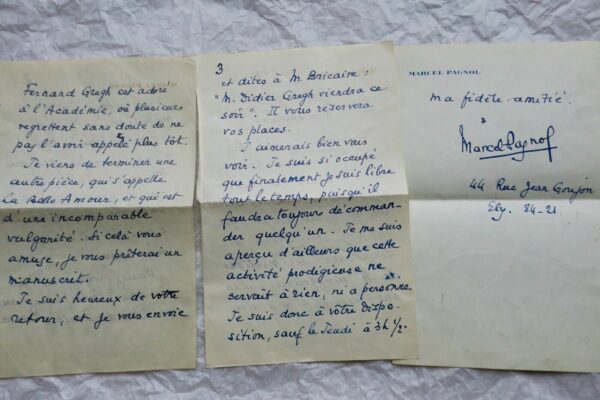 Fernand Gregh est adoré
à l'Académie, où plusieurs
regrettent sans doute de ne
pas l'avoir appelé plus tôt.
Je viens de terminer une
autre pièce, qui s'appelle
La Belle Amour, et qui est
d'une incomparable
vulgarité. Si celà vous
amuse, je vous prêterai un
manuscrit.
Je suis heureux de votre
retour, et je vous envoie
3
et dites à M. Bricaire :
"M. Didier Gregh viendra ce
soir". Il vous réservera
vos places.
J'aimerais bien vous
voir. Je suis si occupé
que finalement je suis libre
tout le temps, puisqu'il
faudra toujours décomman-
der quelqu'un. Je me suis
aperçu d'ailleurs que cette
activité prodigieuse ne
servait à rien, ni a personne.
Je suis donc à votre dispo-
sition, sauf le Jeudi à 3h 1/2.
MARCEL PAGNOL
ma fidèle amitié.
Marcel Pagnol
44 Rue Jean Goujon
Ely. 84-21.